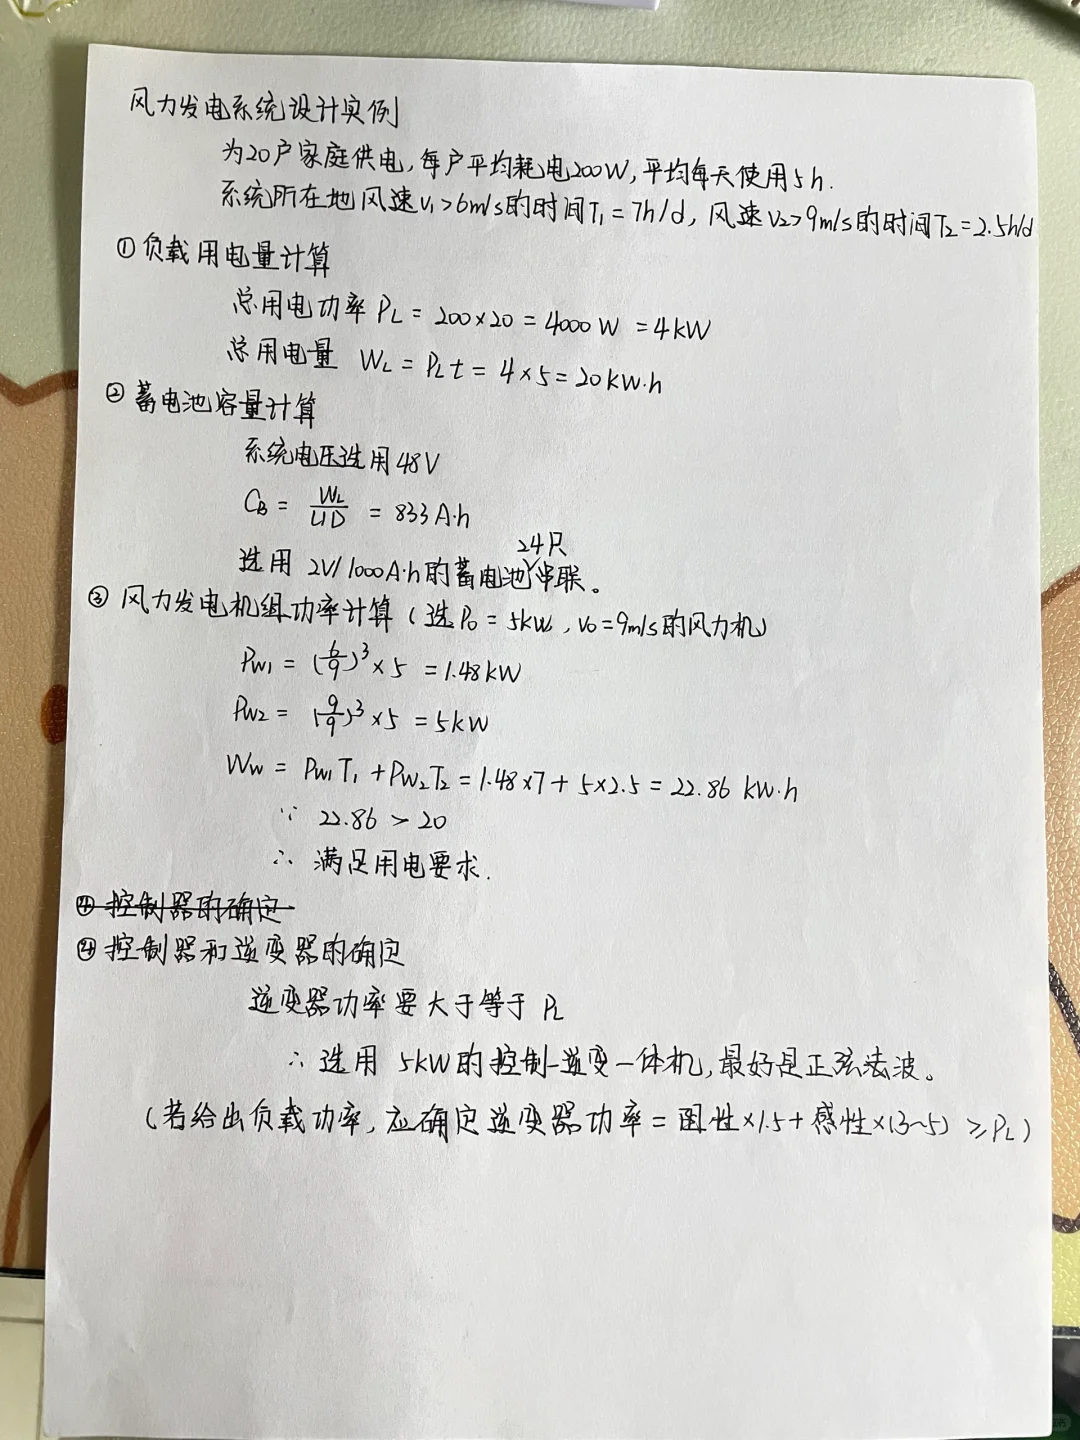 风力发电系统设计实例
为20户家庭供电,每户平均耗电200W,平均每天使用5h.
系统所在地风速v₁>6m/s的时间T₁=7h/d,风速v₂>9m/s的时间T₂=2.5h/d
①负载用电量计算
总用电功率 P_L = 200×20 = 4000 W = 4kW
总用电量 W_L = P_L t = 4×5 = 20kW·h
②蓄电池容量计算
系统电压选用48V
C_B = W_L/UD = 833 A·h
选用 2V/1000A·h的蓄电池24只串联。
③风力发电机组功率计算(选P₀=5kW,v₀=9m/s的风力机)
P_W1 = (6/9)³×5 = 1.48kW
P_W2 = (9/9)³×5 = 5kW
W_W = P_W1 T₁ + P_W2 T₂ = 1.48×7 + 5×2.5 = 22.86 kW·h
∵ 22.86 > 20
∴ 满足用电要求.
④控制器的确定
④控制器和逆变器的确定
逆变器功率要大于等于 P_L
∴ 选用 5kW的控制-逆变一体机,最好是正弦波。
(若给出负载功率,应确定逆变器功率=阻性×1.5+感性×(3~5) ≥P_L)